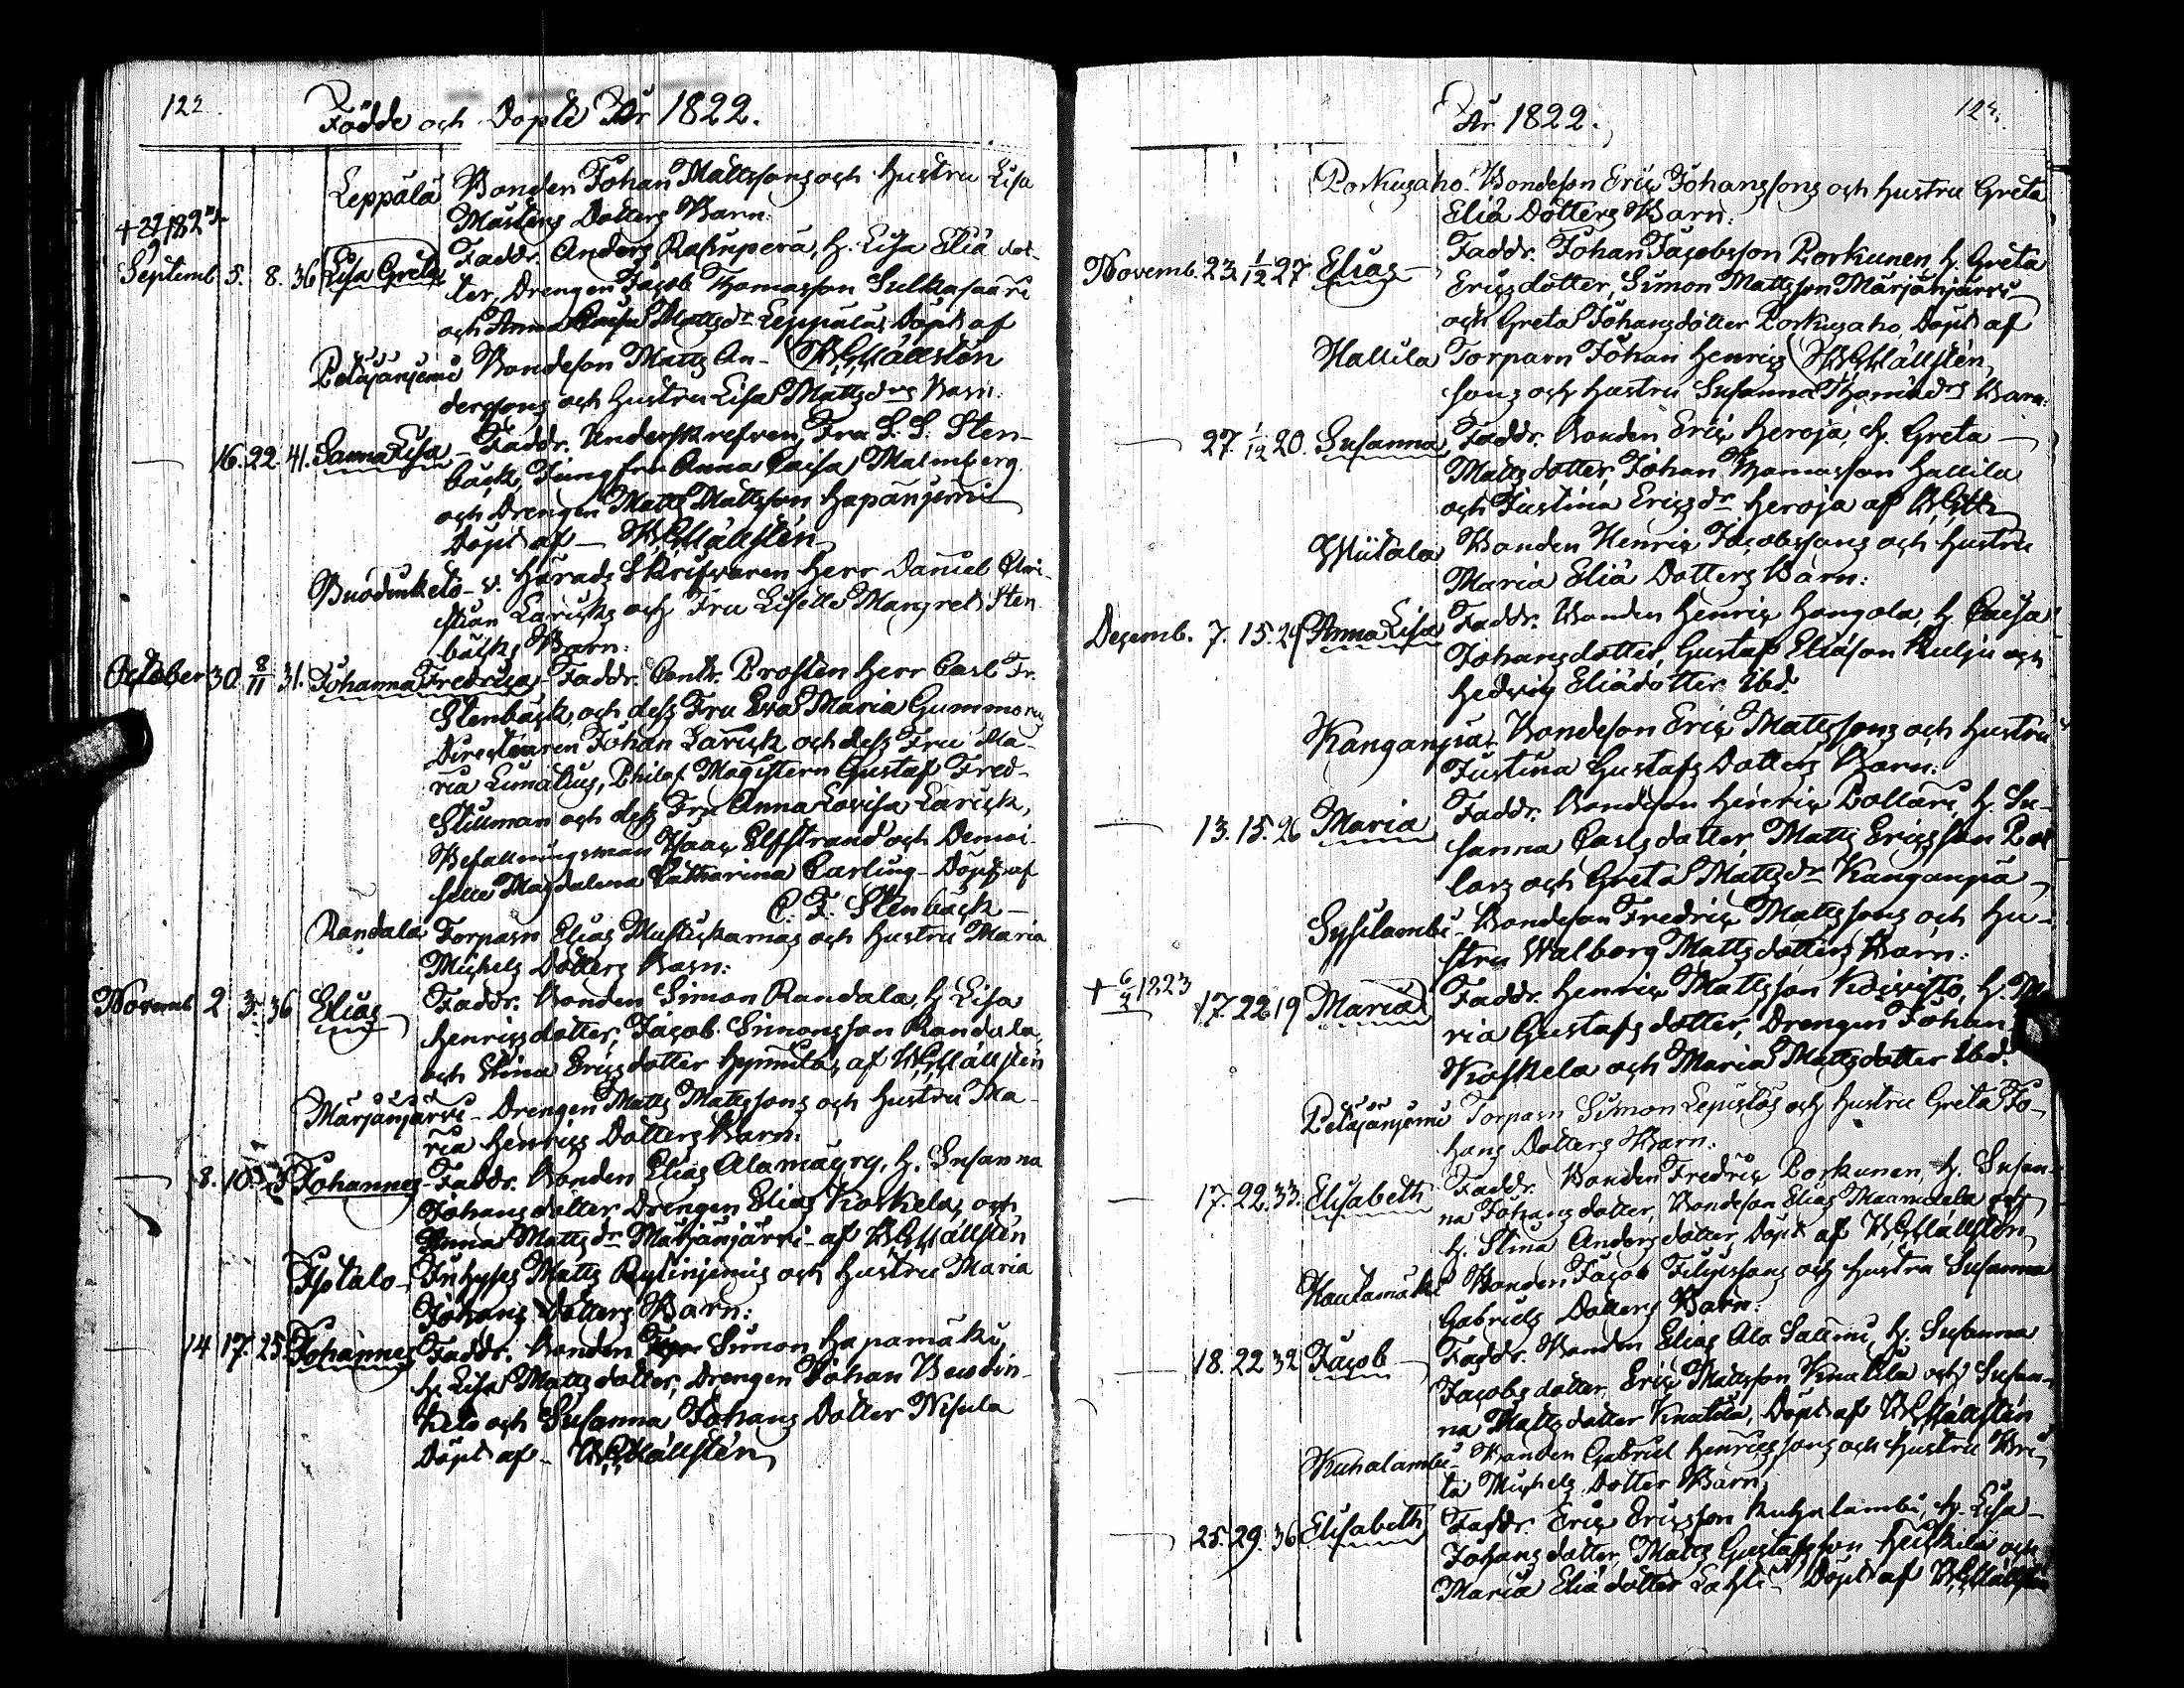 122.
Födde och Döpte År 1822.
Leppälä Bonden Johan Mattssons och Hustru Lisa
Mårtens Dotters Barn:
+ 27/9 182
Faddr. Anders H. Lisa Eliä dot-
Septemb. 5. 8. 36 Lisa Greta
ter, Drengen Jacob Thomasson Sulkasaari
och Anna Caisa Mattsdr Leppälä, Döpt af
Petäjäniemi Bondeson Matts An- Wällstén
derssons och Hustru Lisa Mattsdrs Barn:
— 16. 22. 41. Sanna Lisa — Faddr. Underskrefven, Fru S. S. Sten-
bäck, Jungfru Anna Caisa Malmberg
och Drengen Matts Mattsson Hapaniemi
Döpt af — Wällstén
v. Härads Skrifvaren Herr Daniel Chri-
stian Laricks och Fru Lisette Margret Sten
bäcks Barn:
October 30. 8/11 31. Johanna Fredrica — Faddr. Contr. Prosten Herr Carl Fr.
Stenbäck, och dess Fru Eva Maria Gummerus
Directeuren Johan Larick och dess Fru Ma-
ria Limatius, Philos. Magistern Gustaf Fred-
Stillman och dess Fru Anna Lovisa Larick,
Befallningsman Isaac Elfstrand och Demoi-
selle Magdalena Catharina Carling — Döpt af
C. F. Stenbäck —
Randala Torparn Elias Mustickamas och Hustru Maria
Michels Dotters Barn:
Novemb 2 3. 36 Elias — Faddr. Bonden Simon Randala, H. Lisa
Henricsdotter, Jacob Simonsson Randala,
och Stina Ericsdotter af Wällstén
Märjänjärvi — Drengen Matts Mattssons och Hustru Ma-
ria Henrics Dotters Barn:
— 8. 10. Johannes — Faddr. Bonden Elias Alamäyry, H. Susanna
Johansdotter, Drengen Elias Koskela, och
Anna Mattsdr Märjänjärvi — af Wällstén
Isotalo — Inhyses Matts och Hustru Maria
Johans Dotters Barn:
— 14 17. 25 Johannes Faddr. Bonden Simon Hapamäki,
H. Lisa Mattsdotter, Drengen Johan
och Susanna Johans Dotter Nisula
Döpt af — Wällstén
År 1822.
123.
Porkusaho. Bondeson Eric Johanssons och Hustru Greta
Eliä Dotters Barn:
Novemb. 23. 1/12 27 Elias — Faddr. Johan Jacobsson Porkunen, H. Greta
Ericsdotter, Simon Mattsson Märjänjärvi
och Greta Johansdotter Porkusaho, Döpt af
Hallila Torparn Johan Henrics Wällstén,
sons och Hustru Susanna Thomædrs Barn:
— 27. 1/12 20. Susanna Faddr. Bonden Eric Heroja, H. Greta —
Mattsdotter, Johan Thomasson Hallila
och Justina Ericsdr Heroja af
Wiitala Bonden Henric Jacobssons och Hustru
Maria Eliä Dotters Barn:
Decemb. 7. 15. 25 Anna Lisa Faddr. Bonden Henric Hangola, H. Caisa
Johansdotter, Gustaf Eliäson Kulju och
Hedvig Eliädotter Ibd.
Kanganpä. Bondeson Eric Mattssons och Hustru
Justina Gustafs Dotters Barn:
— 13. 15. 26 Maria Faddr. Bondeson Henric Pollari, H. Su-
sanna Carlsdotter, Matts Ericsson Pol
lars och Greta Mattsdr Kanganpä —
Sysilambi — Bondeson Fredric Mattssons och Hu-
stru Walborg Mattsdotters Barn:
+ 6/4 1823
17. 22 19 Maria Faddr. Henric Mattsson Koivisto, H. Ma
ria Gustafsdotter, Drengen Johan
Koskela och Maria Mattsdotter Ibd.
Petäjäniemi Torparn Simon Lepistös och Hustru Greta Jo-
hans Dotters Barn:
— 17. 22. 33. Elisabeth Faddr. Bonden Fredric Porkunen, H. Susan-
na Johansdotter, Bondeson Elias och
H. Stina Andersdotter, Döpt af Wällstén
Hautamäki Bonden Jacob Filipssons och Hustru Susanna
Gabriels Dotters Barn:
— 18. 22 32 Jacob — Faddr. Bonden Elias Ala Salmi, H. Susanna
Jacobsdotter, Eric Mattsson Knuttila och Susan-
na Mattsdotter Knuttila, Döpt af Wällstén
Kuhalambi — Bonden Gabriel Henricssons och Hustru Bri-
ta Michels Dotter Barn;
— 25. 29. 36 Elisabeth Faddr. Eric Ericsson Kuhalambi, H. Lisa —
Johansdotter, Matts Gustafsson Heickilä och
Maria Eliädotter Lahti — Döpt af Wällstén